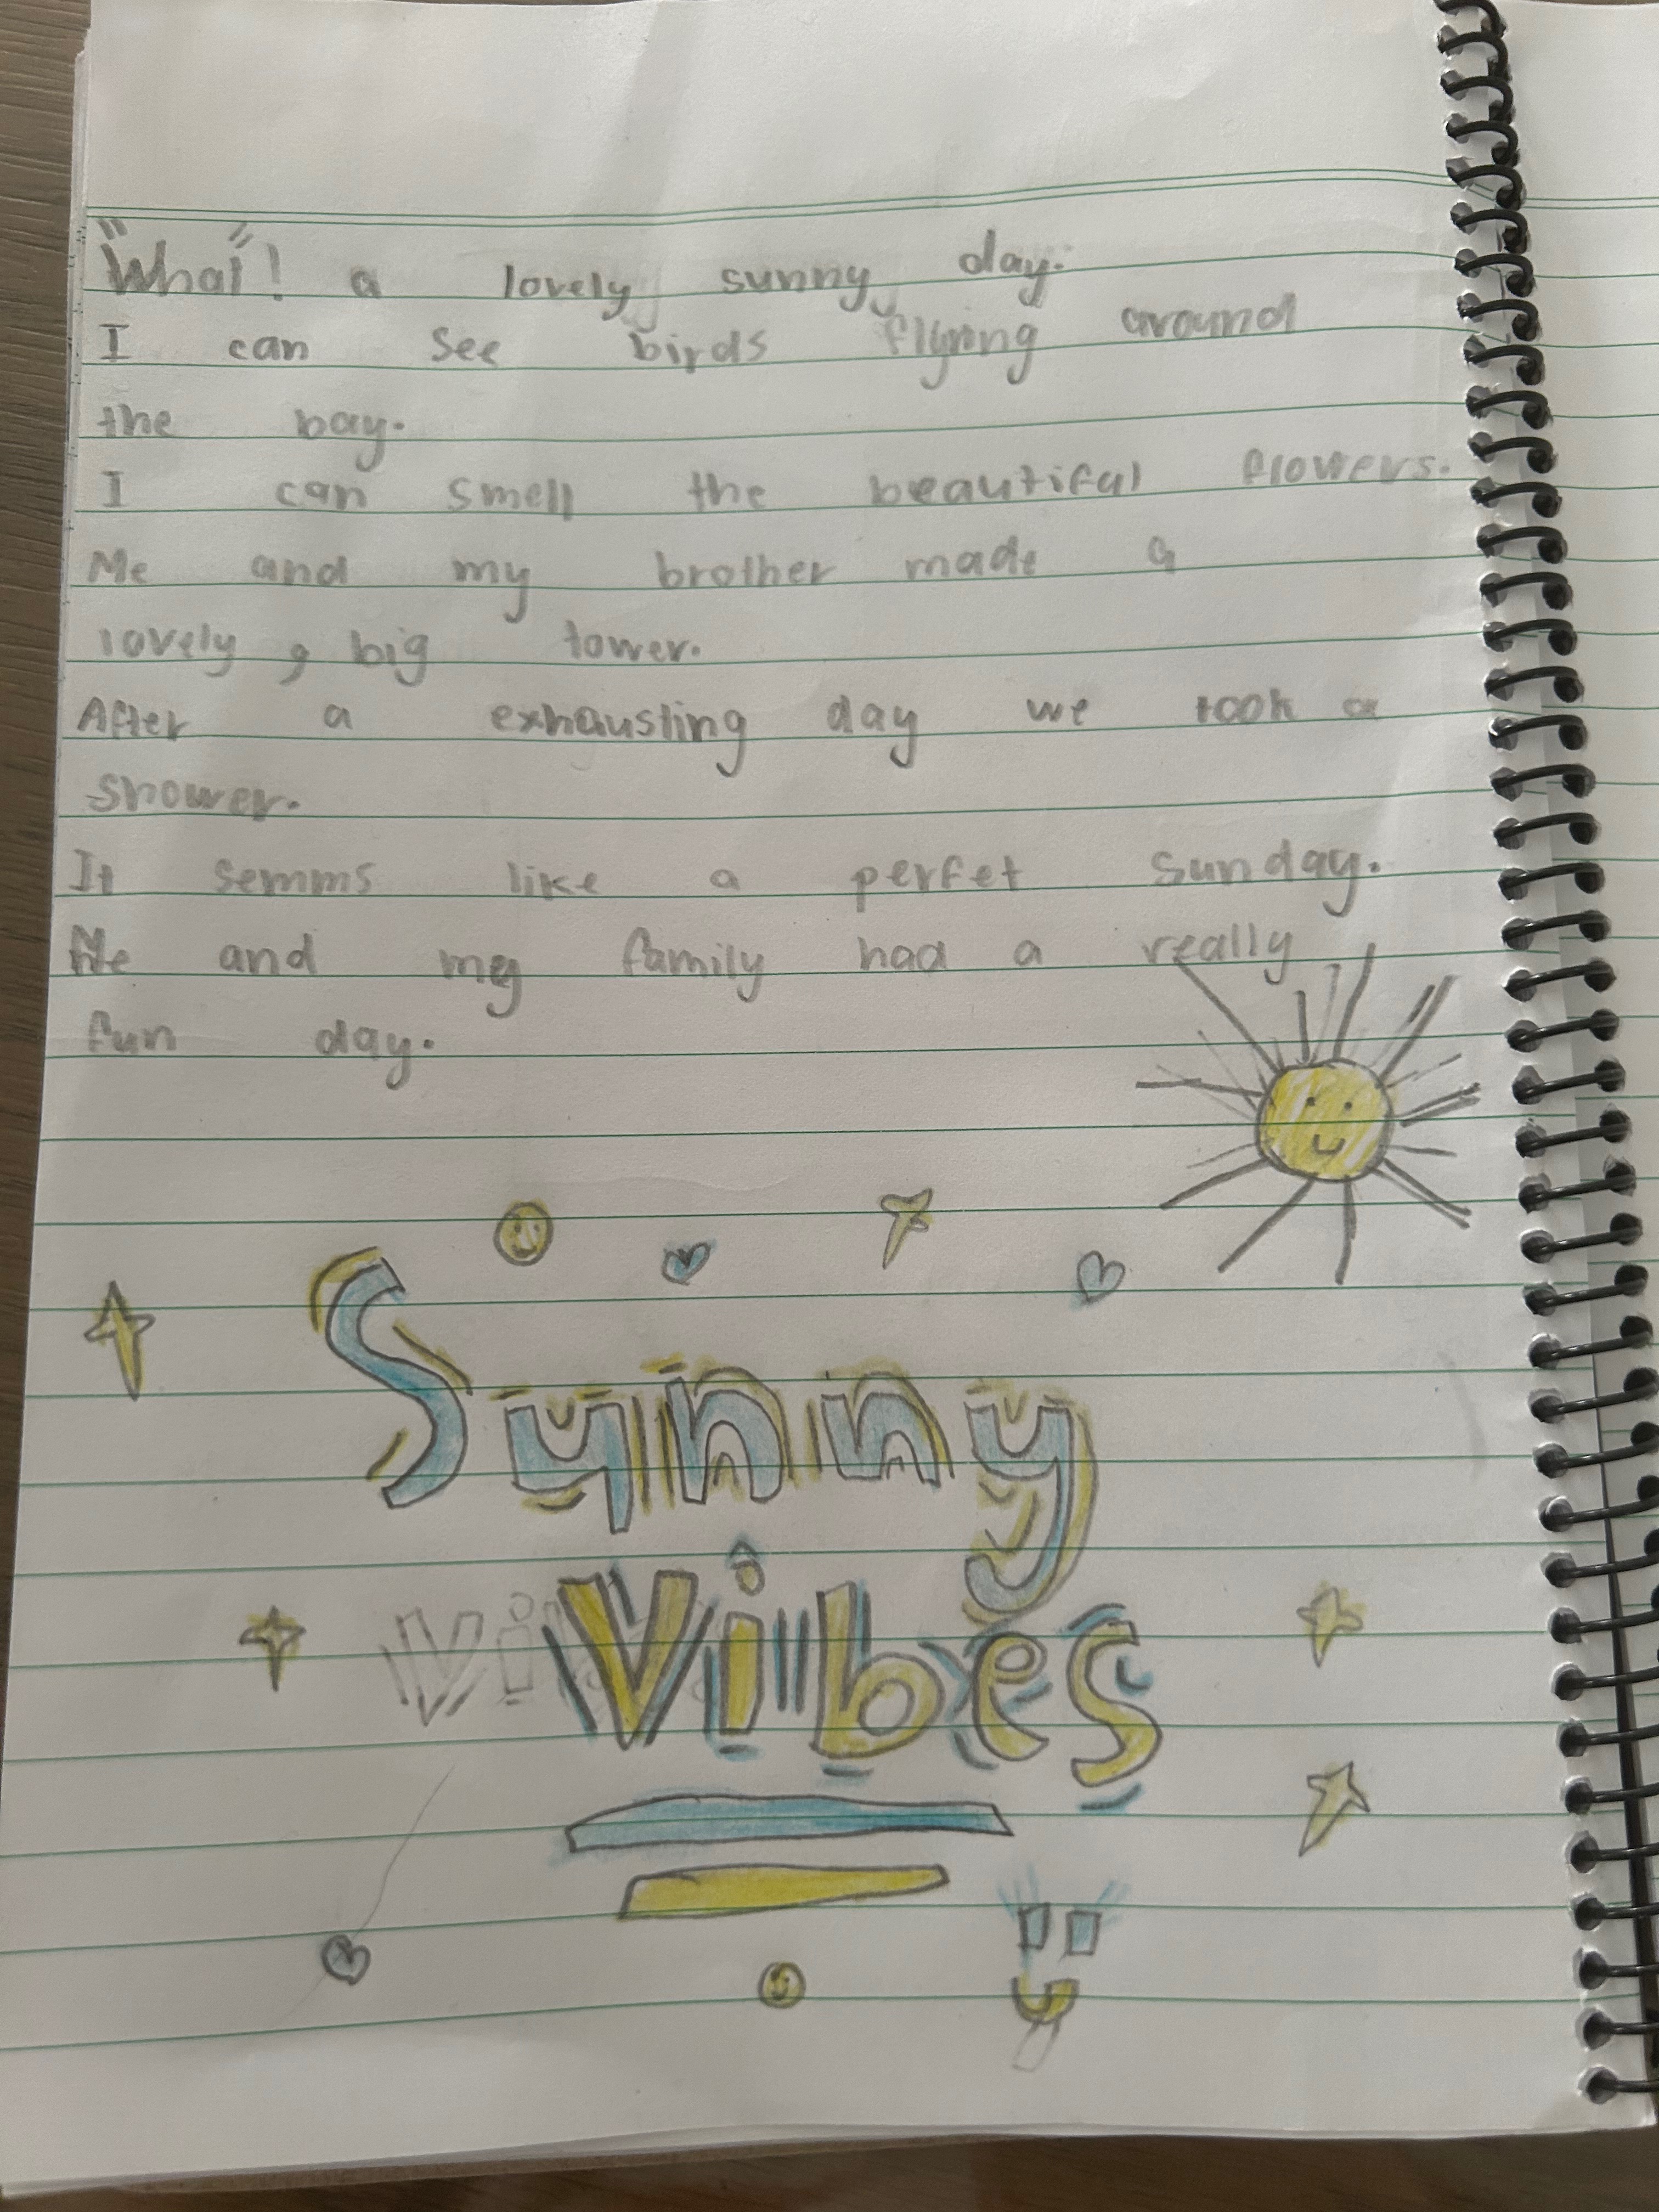 "What"! a lovely sunny day.
I can see birds flying around
the bay.
I can smell the beautiful flowers.
Me and my brother made a
lovely, big tower.
After a exhausting day we took a
shower.
It semms like a perfet sunday.
Me and my family had a really
fun day.
Sunny
Vibes